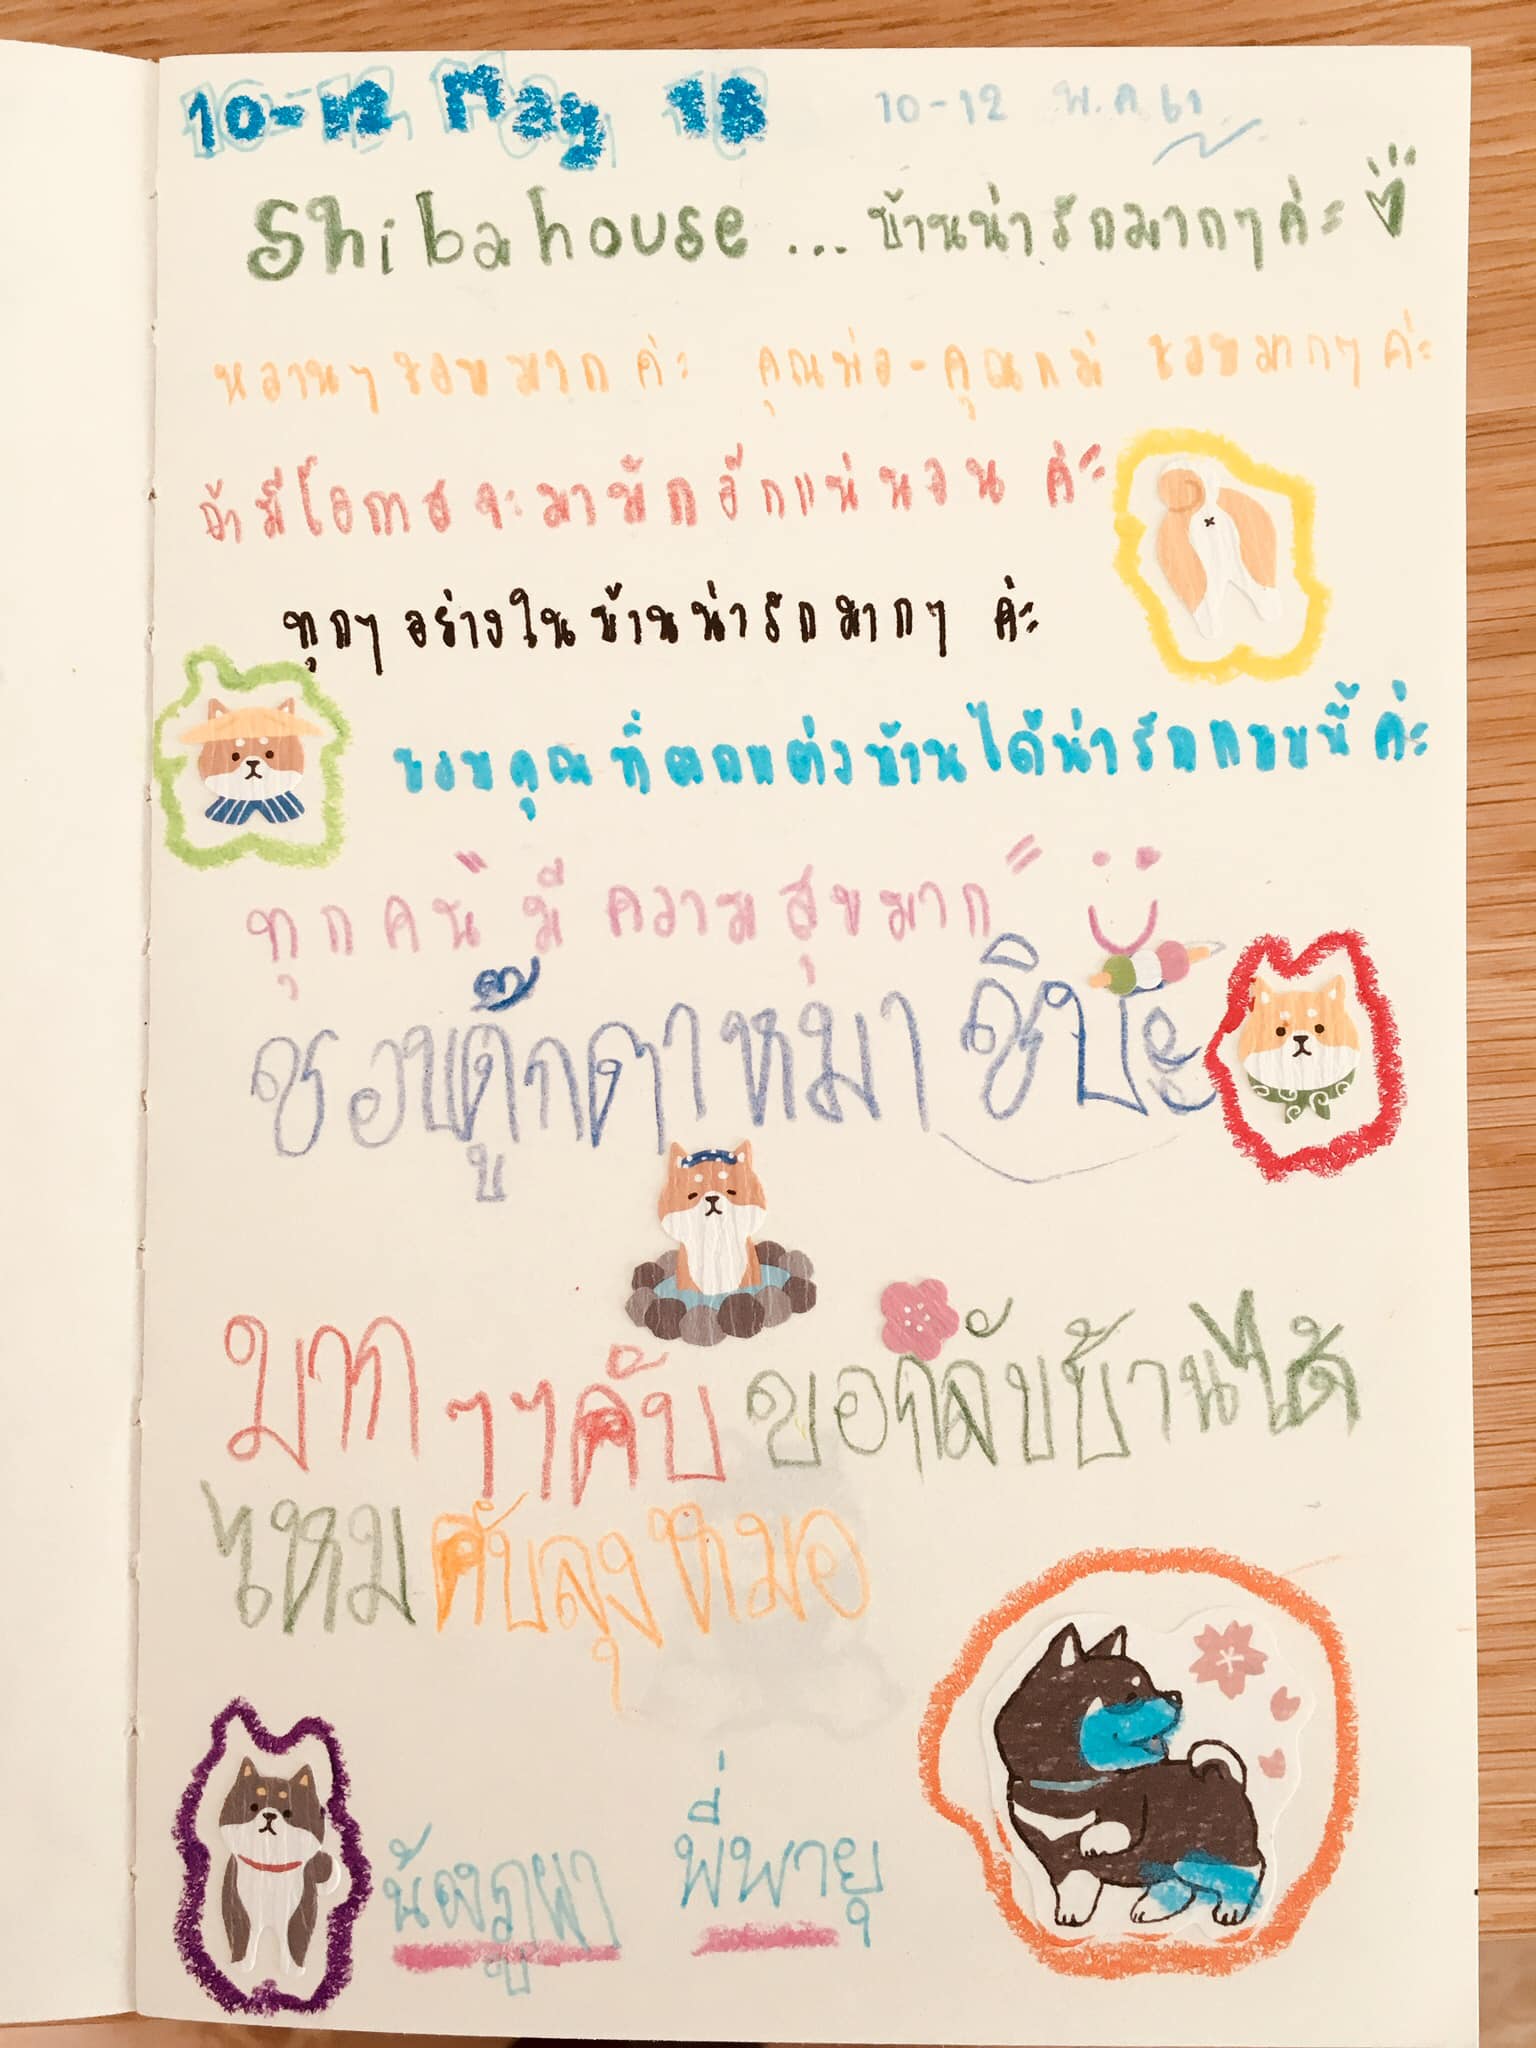 10-12 May 18 10-12 พ.ค 61
Shibahouse ... บ้านน่ารักมากๆค่ะ
หลานๆชอบมากค่ะ คุณพ่อ-คุณแม่ ชอบมากๆค่ะ
ถ้ามีโอกาสจะมาพักอีกแน่นอน ค่ะ
ทุกๆอย่างในบ้านน่ารักมากๆ ค่ะ
ขอบคุณที่ตกแต่งบ้านได้น่ารักแบบนี้ค่ะ
ทุกคน"มีความสุขมาก"
ชอบตุ๊กตาหมาชิบะ
มากๆๆคับ ขอกลับบ้านได้
ไหมคับลุงหมอ
น้องภูผา พี่พายุ